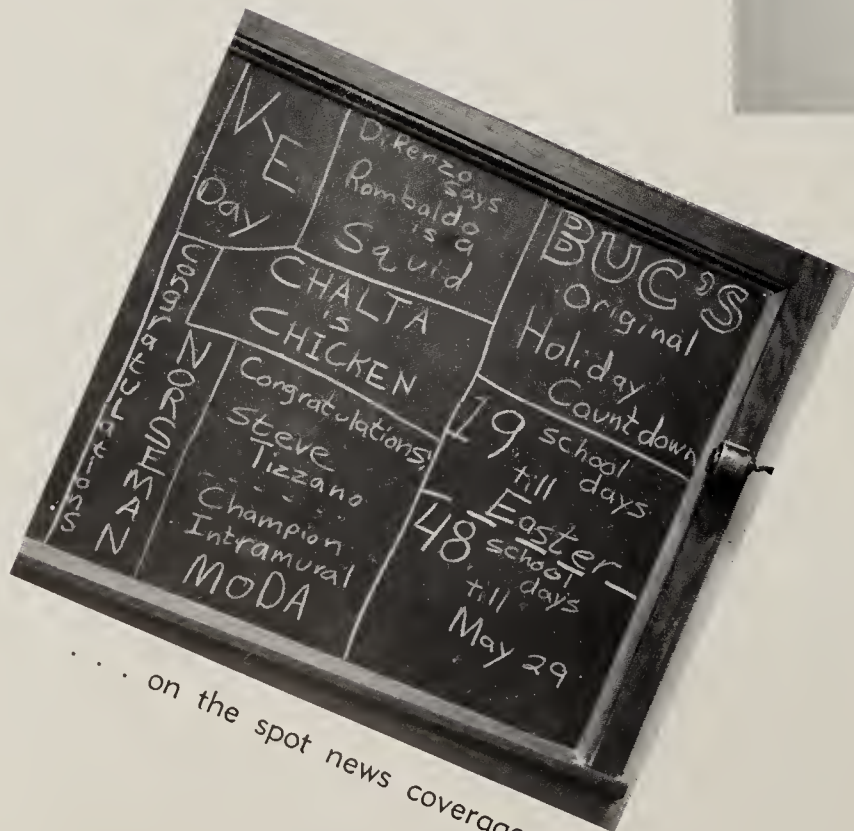 V-E
Day
DiRenzo
says
Rombaldo
is a
Squid
BUC'S
Original
Holiday
Countdown
CHALTA
is
CHICKEN
Congratulations
NORSEMAN
Congratulations,
Steve
Tizzano
Champion
Intramural
MODA
19 school
days
till
Easter
48 school
days
till
May 29
. . . on the spot news coverage